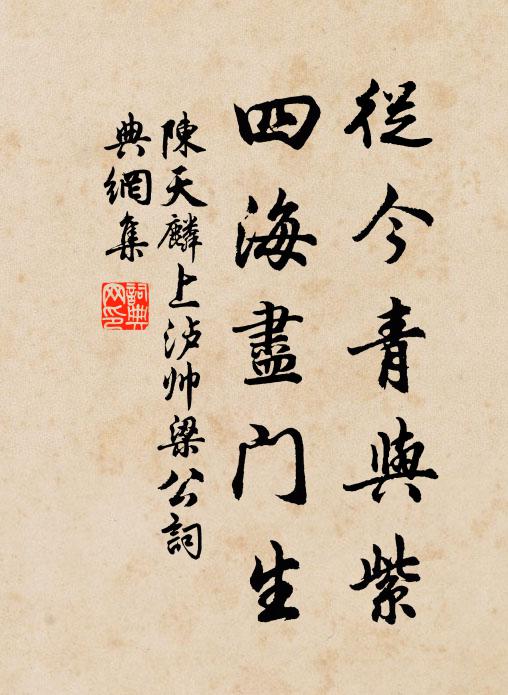 從今青與紫
四海盡门生
陳天麟上泸帅梁公詞
典網集
詞典网印